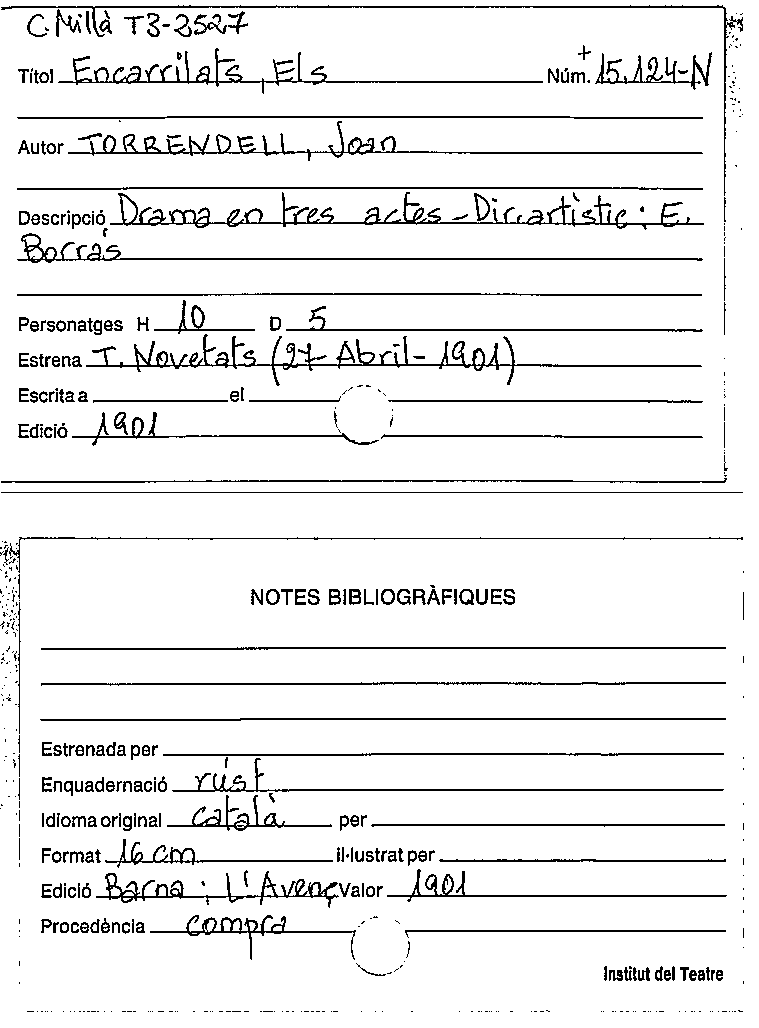 C. Millà T3-3527
Títol Encarrilats, Els Núm. + 15.124-N
Autor TORRENDELL, Joan
Descripció Drama en tres actes - Dir. artístic: E.
Borràs
Personatges H 10 D 5
Estrena T. Novetats (27- Abril- 1901)
Escrita a el
Edició 1901
NOTES BIBLIOGRÀFIQUES
Estrenada per
Enquadernació rúst
Idioma original català per
Format 16 cm il·lustrat per
Edició Barna : L'Avenç Valor 1901
Procedència compra
Institut del Teatre